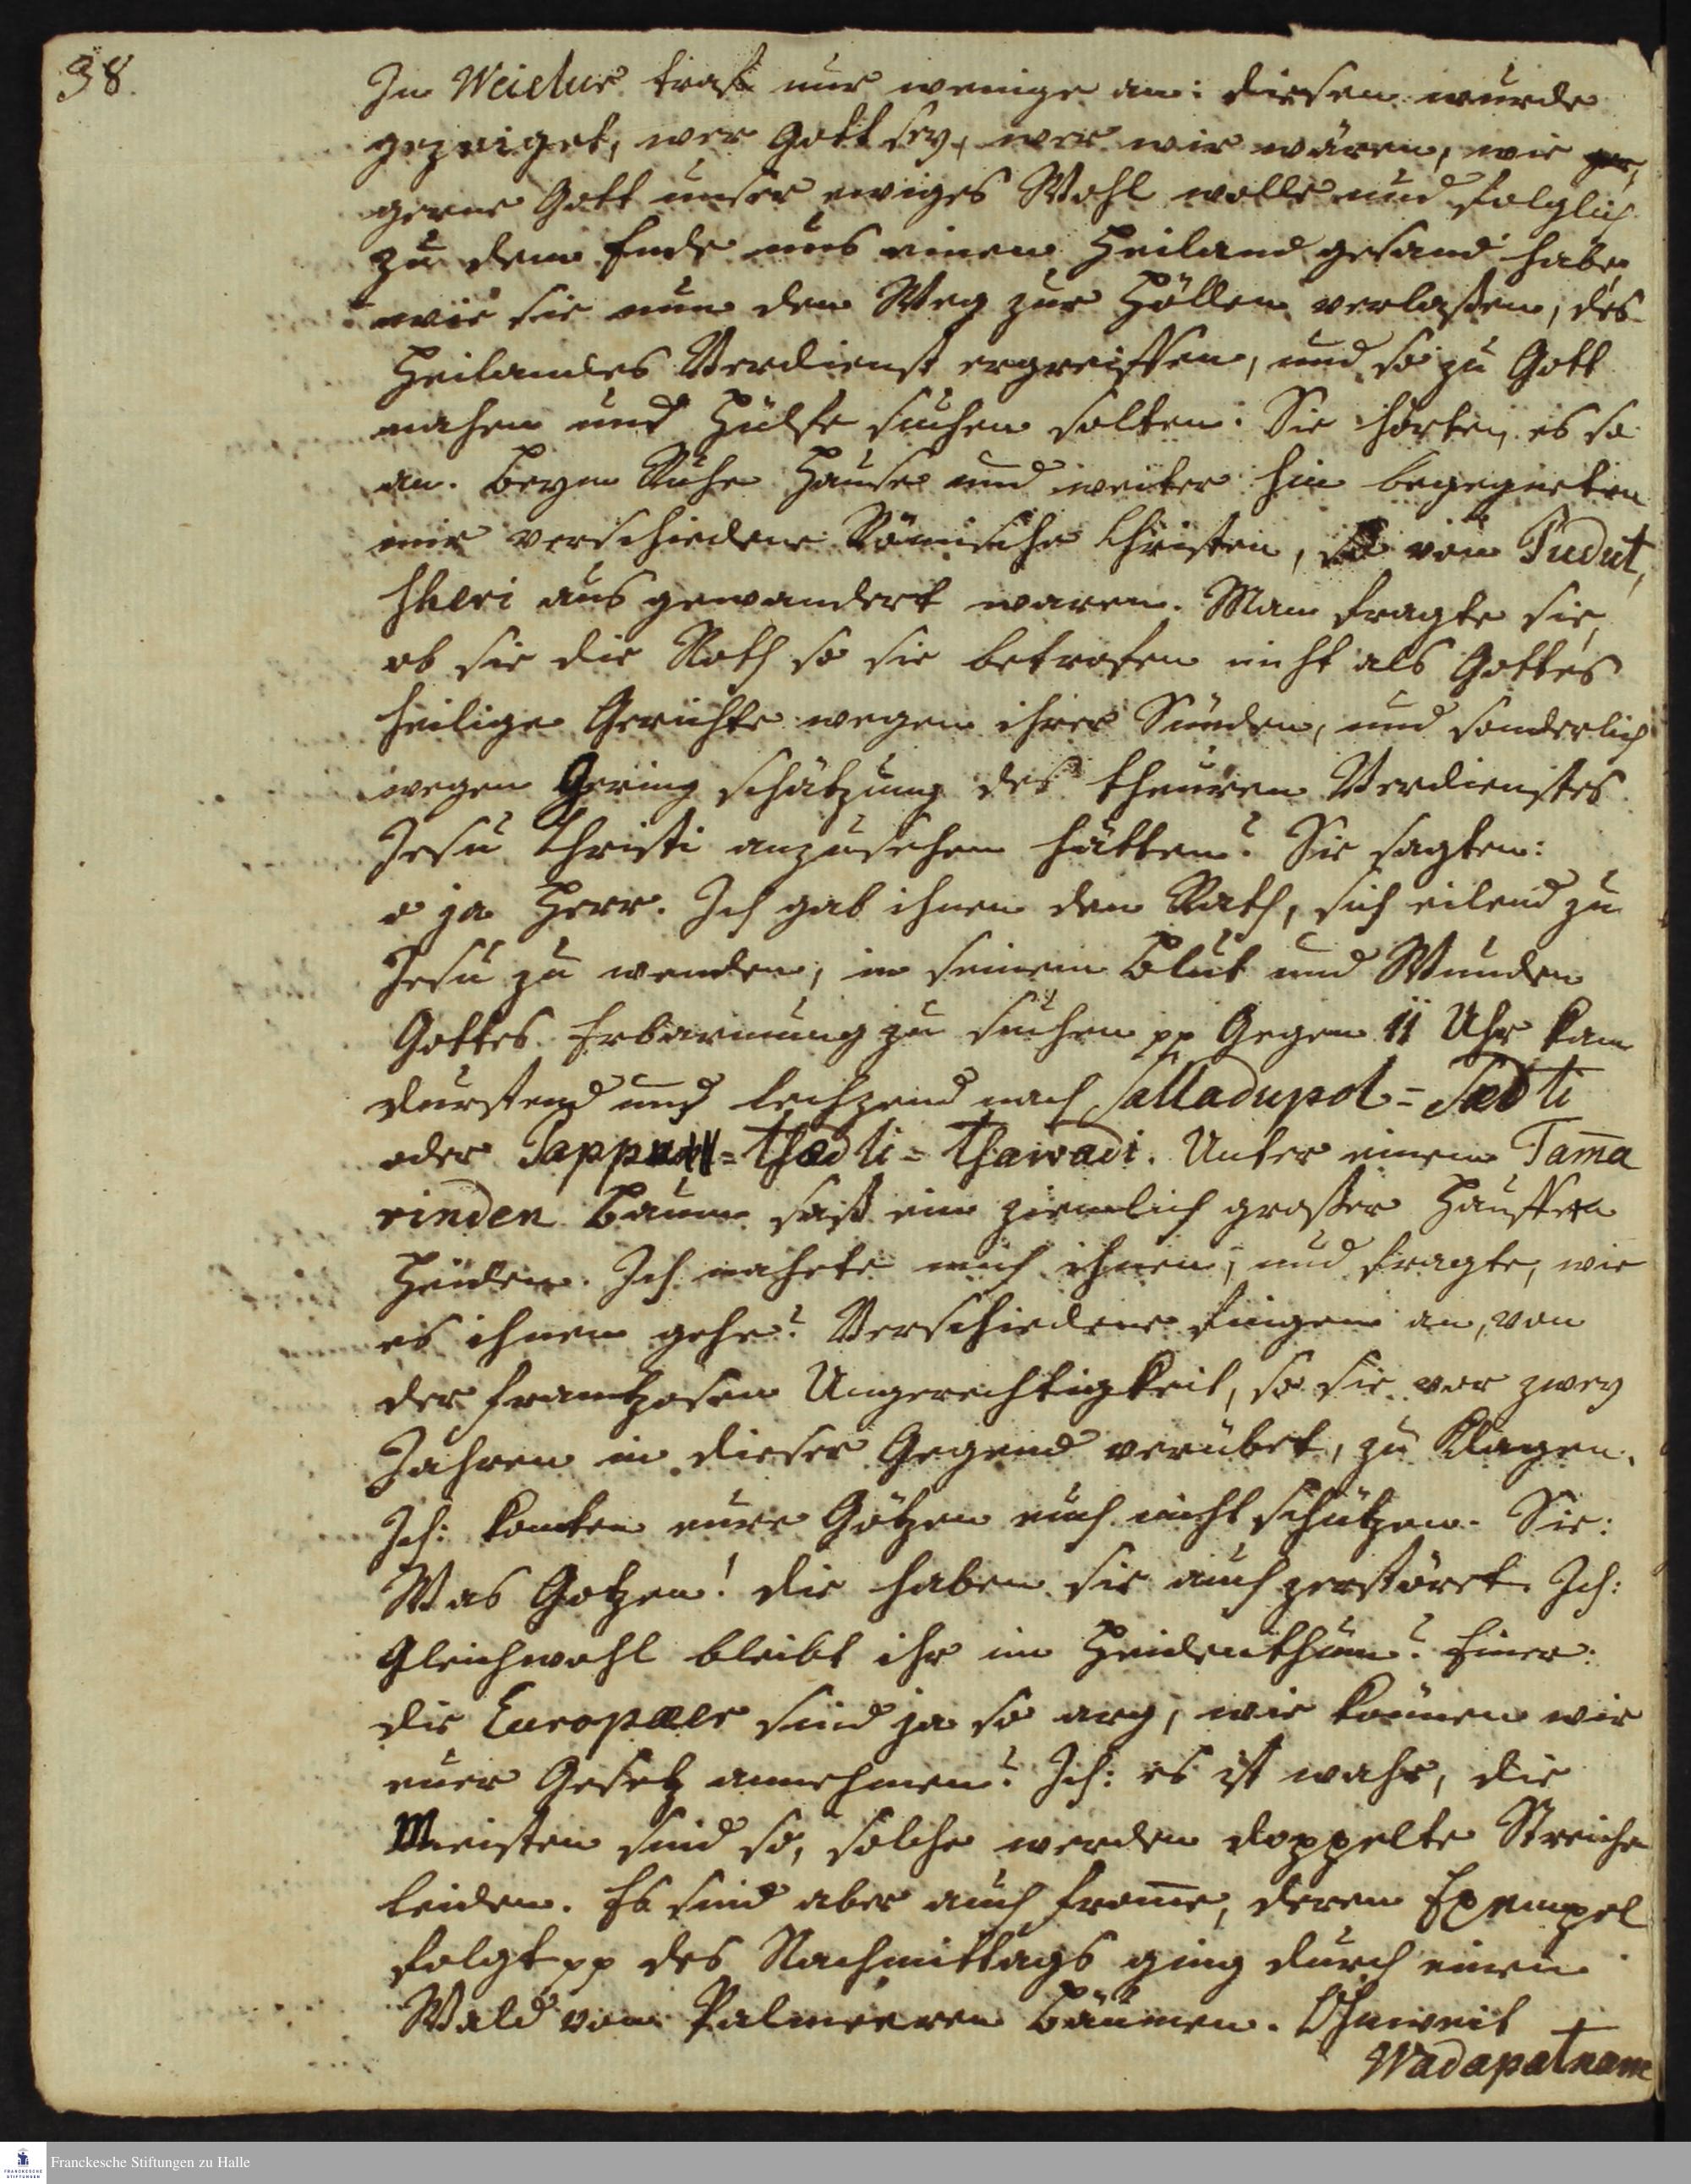 38.
In Weielur traf nur wenige an: diesen wurde
gezeiget, wer Gott sey, wer wir wären, wie
gerne Gott unser ewiges Wohl wolle und folglich
zu dem Ende uns einen Heiland gesand habe,
wie sie nun den Weg zur Höllen verlaßen, des
Heilandes Verdienst ergreiffen, und so zu Gott
nahen und Hülfe suchen solten. Sie hörten es so
an. Beym Ruhe Hause und weiter hin begegneten
mir verschiedene Römische Christen, so von Pudut,
sheri aus gewandert waren. Man fragte sie,
ob sie die Noth so sie betrofen nicht als Gottes
heilige Gerichte wegen ihrer Sünden, und sonderlich
wegen Gering schätzung des theuren Verdienstes
Jesu Christi anzusehen hätten? Sie sagten:
o ja Herr. Ich gab ihnen den Rath, sich eilend zu
Jesu zu wenden, in seinem Blut und Wunden
Gottes Erbarmung zu suchen pp Gegen 11 Uhr kam
durstend und lechzend nach Salladupol=
oder =thædti=thawadi. Unter einem Tam̄a
rinden Baum saß ein ziemlich großer Hauffen
Heiden. Ich nahete mich ihnen, und fragte, wie
es ihnen gehe? Verschiedene fingen an, von
der Frantzosen Ungerechtigkeit, so sie vor zwey
Jahren in dieser Gegend verübet, zu klagen.
Ich: konten eure Götzen euch nicht schützen. Sie:
Was Gotzen! die haben sie auch zerstöret. Ich:
Gleichwohl bleibt ihr im Heidenthum? Einer:
die Europæer sind ja so arg, wie können wir
euer Gesetz annehmen? Ich: es ist wahr, die
Meisten sind so, solche werden doppelte Streiche
leiden. Es sind aber auch from̄e, deren Exempel
folgt pp des Nachmittags ging durch einen
Wald von Palmeeren Bäumen. Ohnweit
Wadapatnam
Franckesche Stiftungen zu Halle